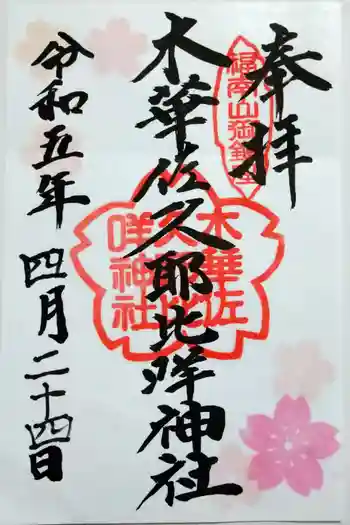 奉拝
木華佐久耶比咩神社
令和五年
四月二十四日
木華佐
久耶比
咩神社